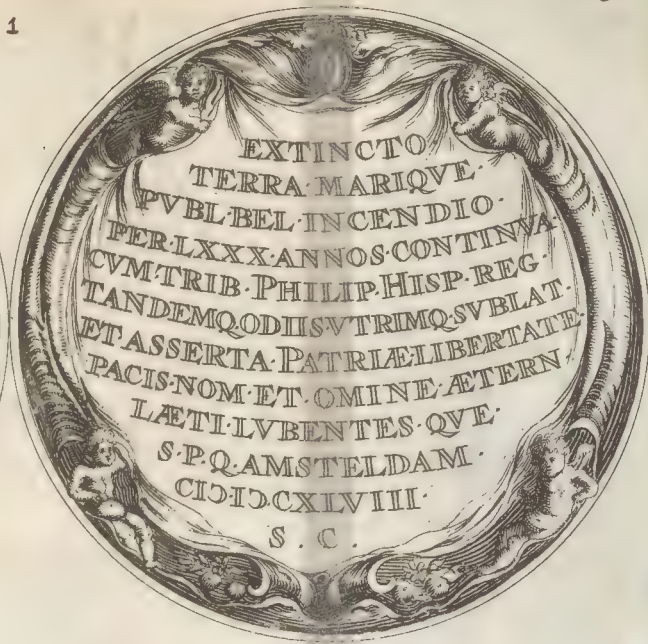 1
EXTINCTO
TERRA·MARIQVE
PVBL·BEL·INCENDIO·
PER·LXXX·ANNOS·CONTINVA·
CVM·TRIB·PHILIP·HISP·REG·
TANDEMQ·ODIIS·VTRIMQ·SVBLAT·
ET ASSERTA·PATRIÆ·LIBERTATE·
PACIS·NOM·ET·OMINE·ÆTERN·
LÆTI·LVBENTES·QVE·
S·P·Q·AMSTELDAM·
CIↃ·IↃ·CXLVIII·
S . C .